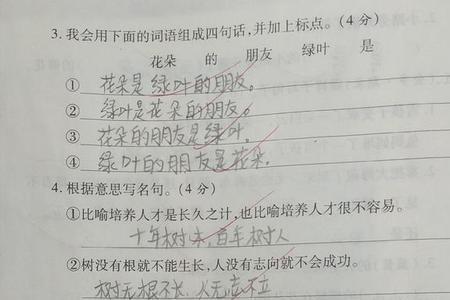 3.我会用下面的词语组成四句话,并加上标点。(4分)
花朵 的 朋友 绿叶 是
① 花朵是绿叶的朋友。
② 绿叶是花朵的朋友。
③ 花朵的朋友是绿叶.
④ 绿叶的朋友是花朵.
4.根据意思写名句。(4分)
①比喻培养人才是长久之计,也比喻培养人才很不容易。
十年树木,百年树人
②树没有根就不能生长,人没有志向就不会成功。
树无根不长,人无志不立